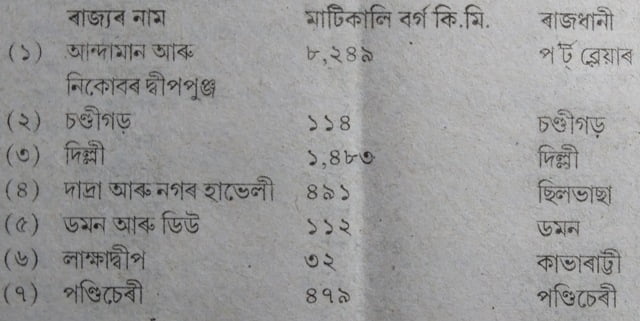 ৰাজ্যৰ নাম মাটিকালি বৰ্গ কি.মি. ৰাজধানী
(১) আন্দামান আৰু ৮,২৪৯ পৰ্ট ব্লেয়াৰ
নিকোবৰ দ্বীপপুঞ্জ
(২) চণ্ডীগড় ১১৪ চণ্ডীগড়
(৩) দিল্লী ১,৪৮৩ দিল্লী
(৪) দাদ্ৰা আৰু নগৰ হাভেলী ৪৯১ ছিলভাছা
(৫) ডমন আৰু ডিউ ১১২ ডমন
(৬) লাক্ষাদ্বীপ ৩২ কাভাৰাট্টী
(৭) পণ্ডিচেৰী ৪৭৯ পণ্ডিচেৰী